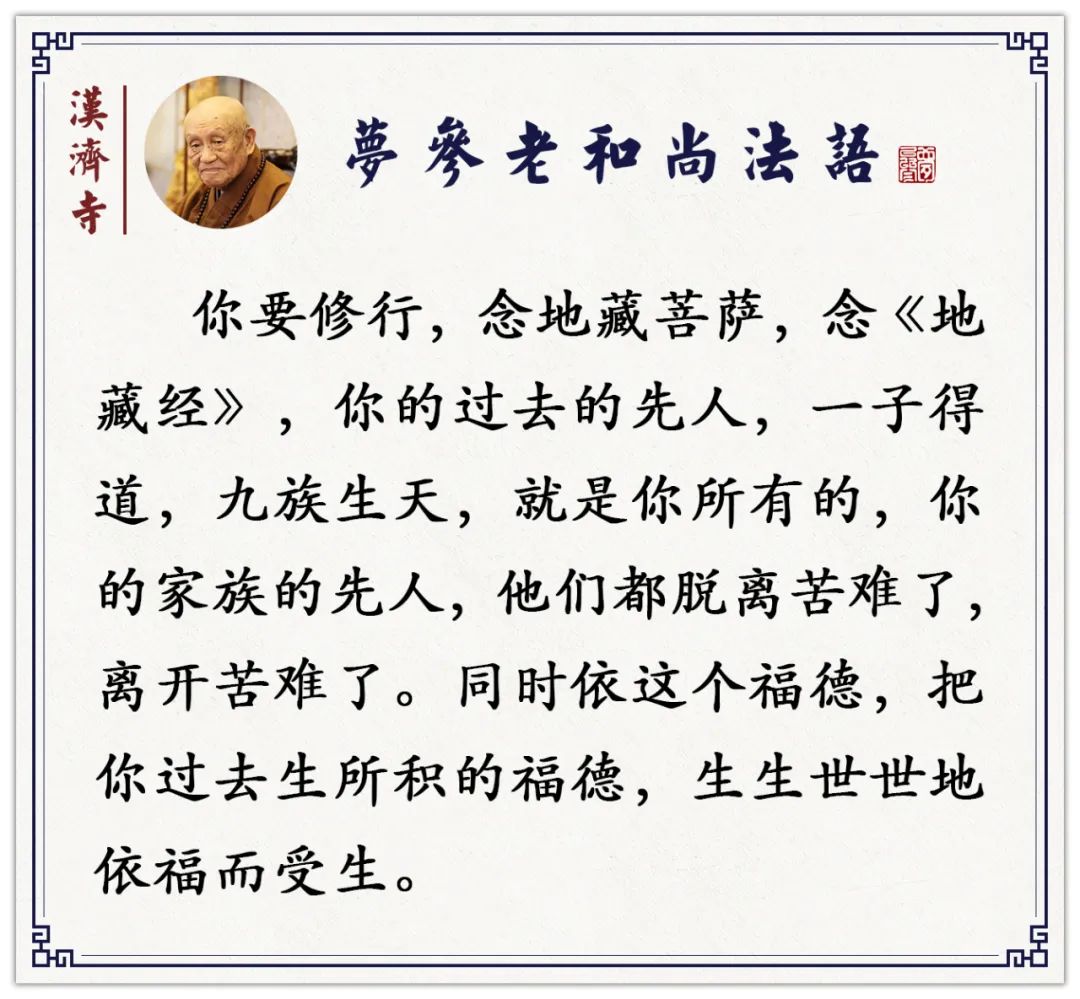 漢濟寺
夢參老和尚法語
你要修行，念地藏菩萨，念《地
藏经》，你的过去的先人，一子得
道，九族生天，就是你所有的，你
的家族的先人，他们都脱离苦难了，
离开苦难了。同时依这个福德，把
你过去生所积的福德，生生世世地
依福而受生。